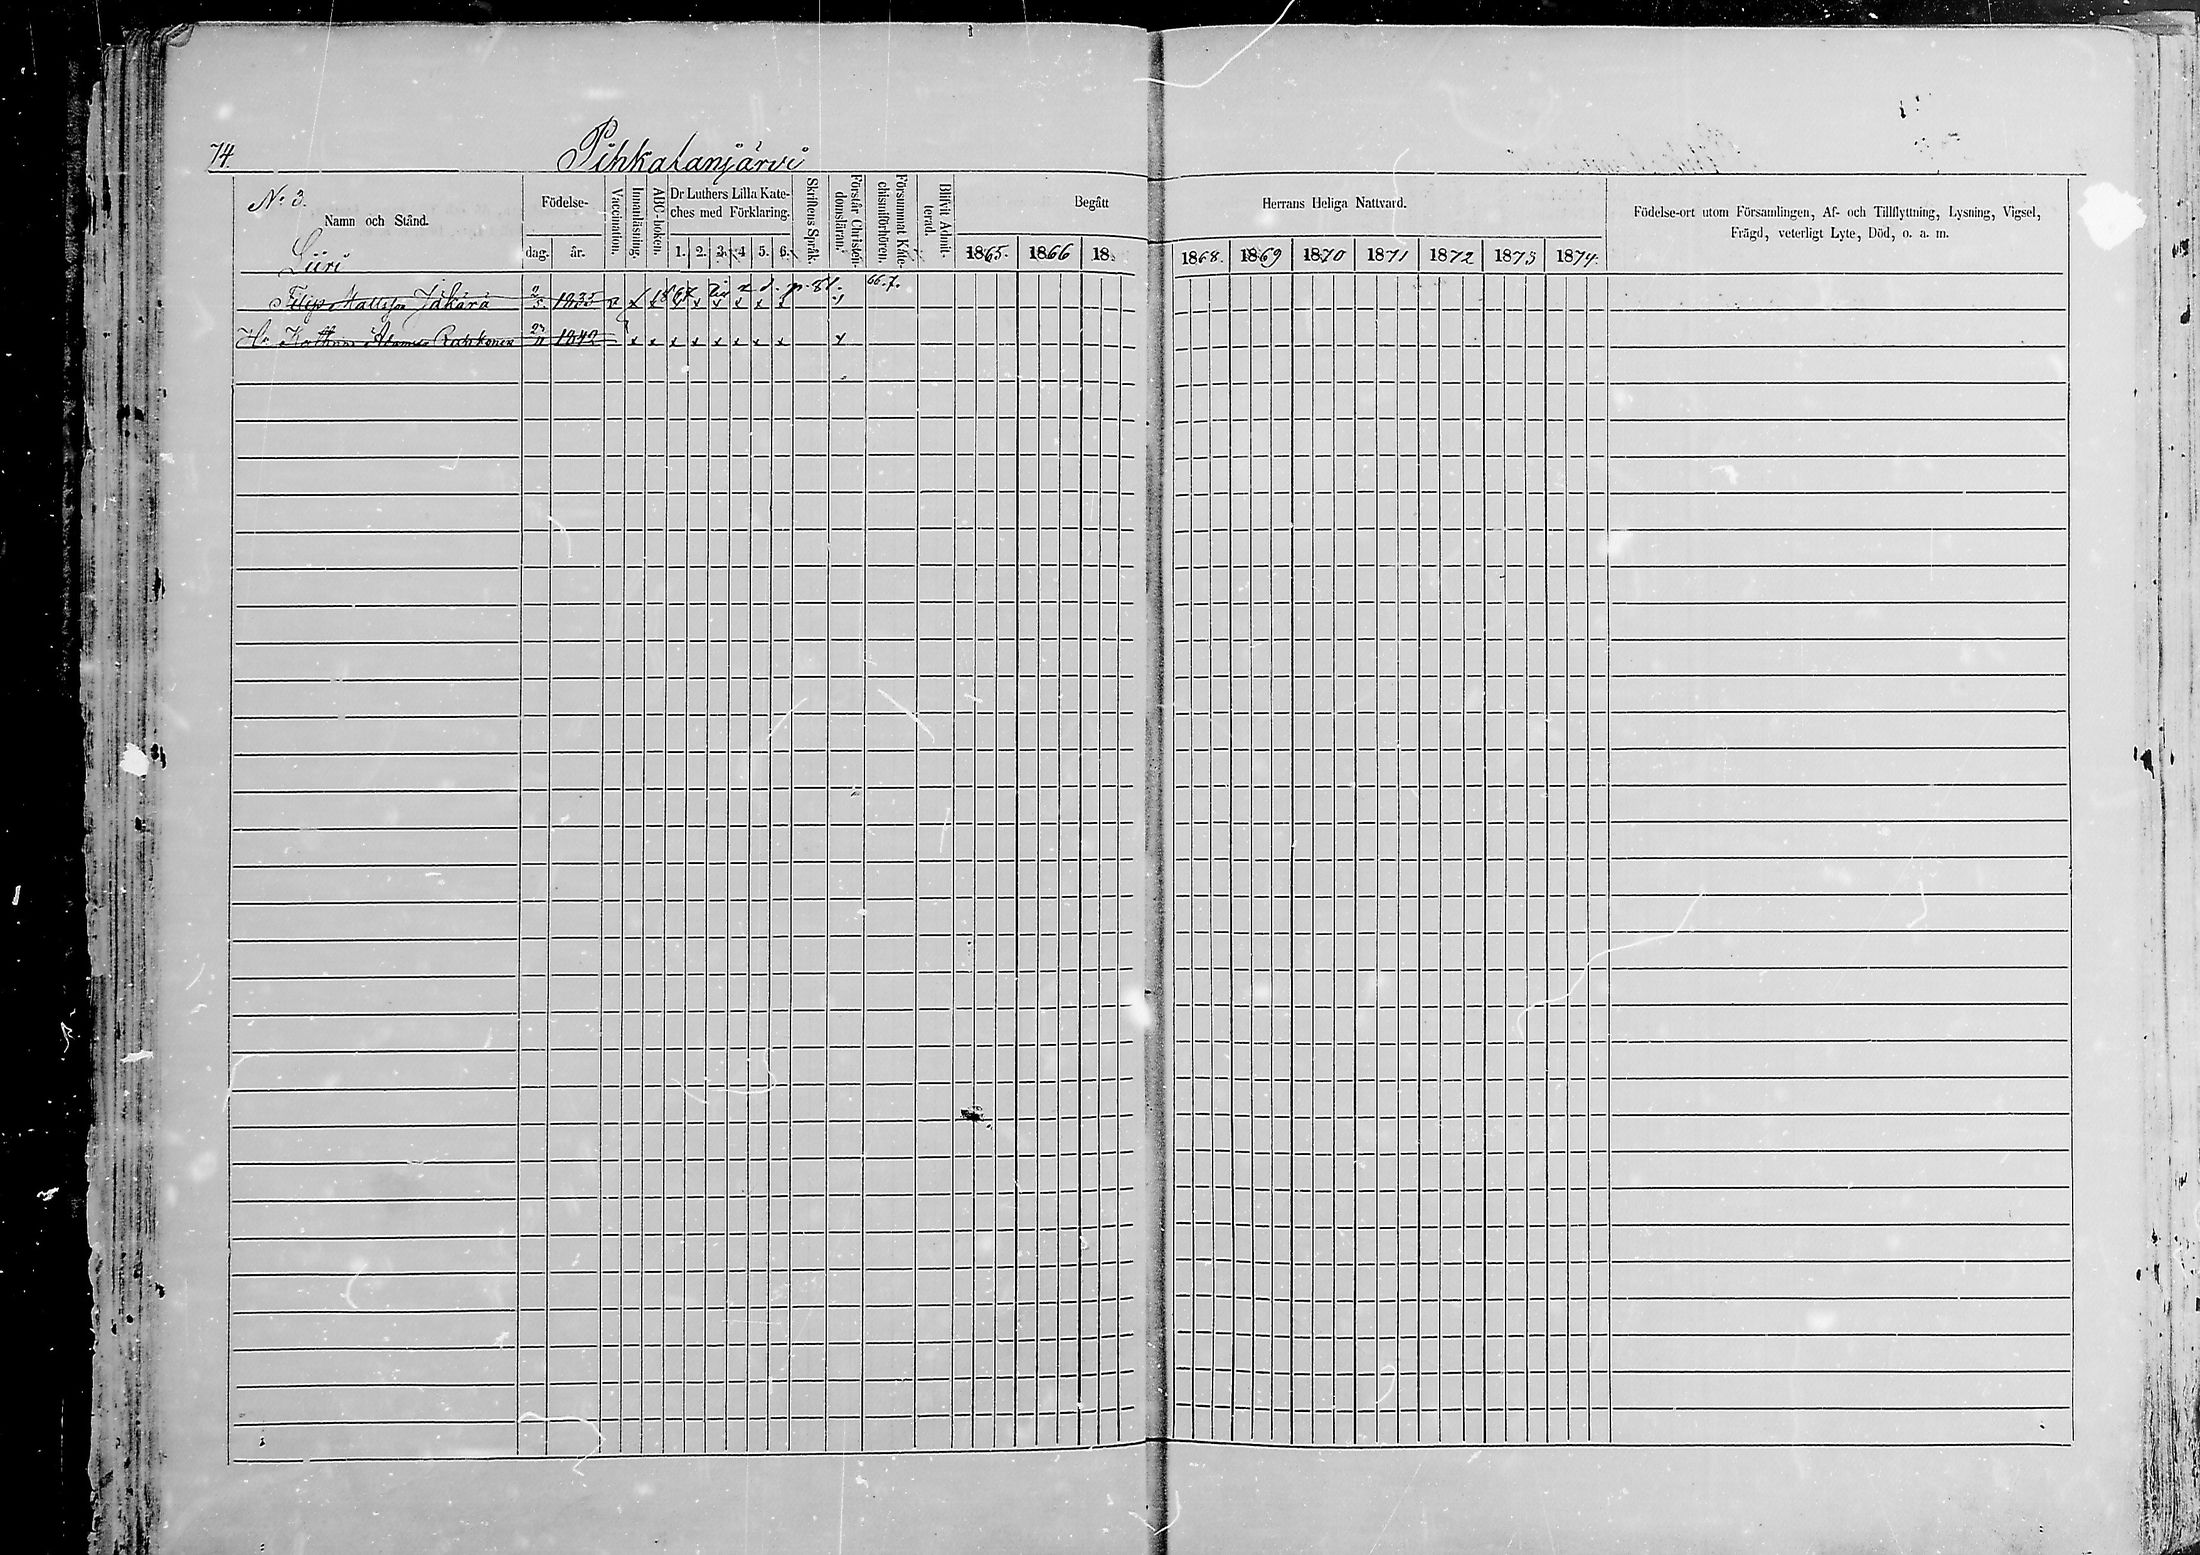 74.
Pihkalanjärvi
No. 3.
Namn och Stånd.
Födelse-
dag. år.
Vaccination.
Innanläsning.
ABC-boken.
Dr Luthers Lilla Kate-
ches med Förklaring.
1. 2. 3. 4 5. 6.
Skriftens Språk.
Förstår Christen-
domsläran.
Försummat Kate-
chismiförhören.
Blifvit Admit-
terad.
Begått
1865. 1866 18
Herrans Heliga Nattvard.
1868. 1869 1870 1871 1872 1873 1874.
Födelse-ort utom Församlingen, Af- och Tillflyttning, Lysning, Vigsel,
Frägd, veterligt Lyte, Död, o. a. m.
Liiri
Filip Mattsson Jäkärä 2/5 1835 v x x x x x x x x 1867 p. 81. 66.7.
Hu Kathrina Adamsdr 23/11 1842 x x x x x x x x x